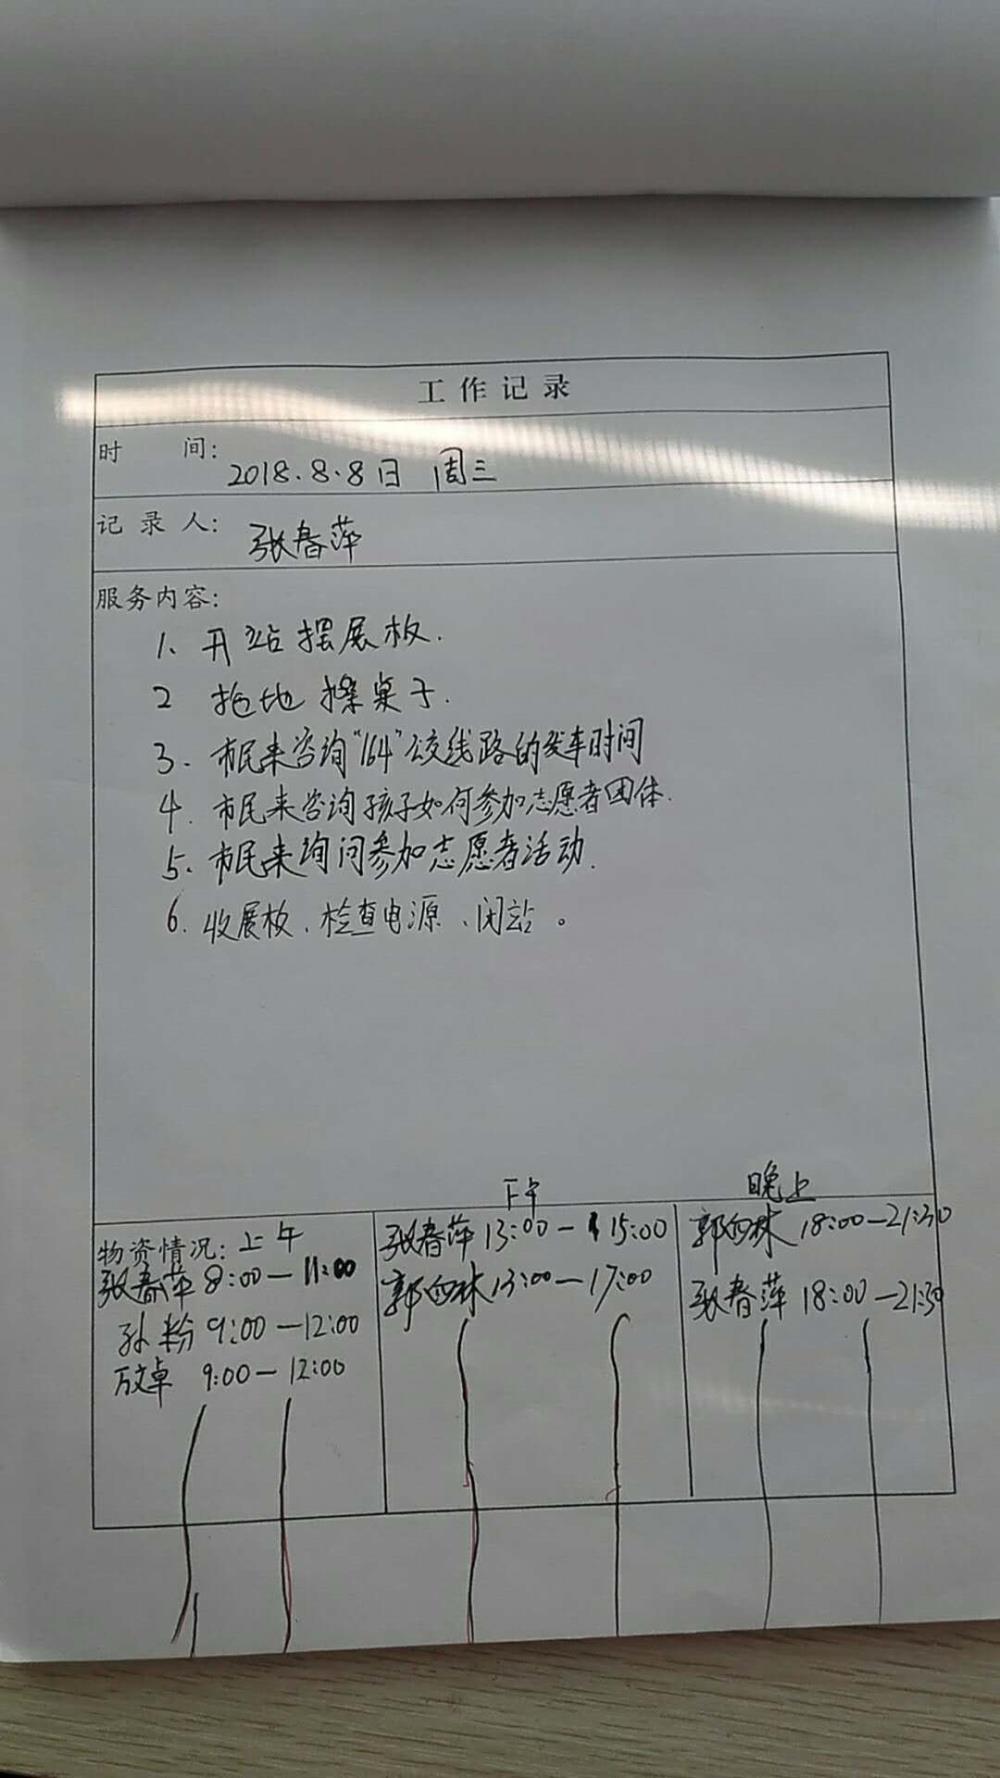 工作记录
时 间: 2018.8.8日 周三
记录人: 张春萍
服务内容:
1、开站摆展板.
2 拖地 擦桌子.
3. 市民来咨询“164”公交线路的发车时间
4. 市民来咨询孩子如何参加志愿者团体.
5. 市民来询问参加志愿者活动.
6. 收展板、检查电源、闭站。
物资情况: 上午
张春萍 8:00—11:00
孙粉 9:00—12:00
万文卓 9:00—12:00
下午
张春萍 13:00—15:00
郭 林 13:00—17:00
晚上
郭 林 18:00—21:30
张春萍 18:00—21:30